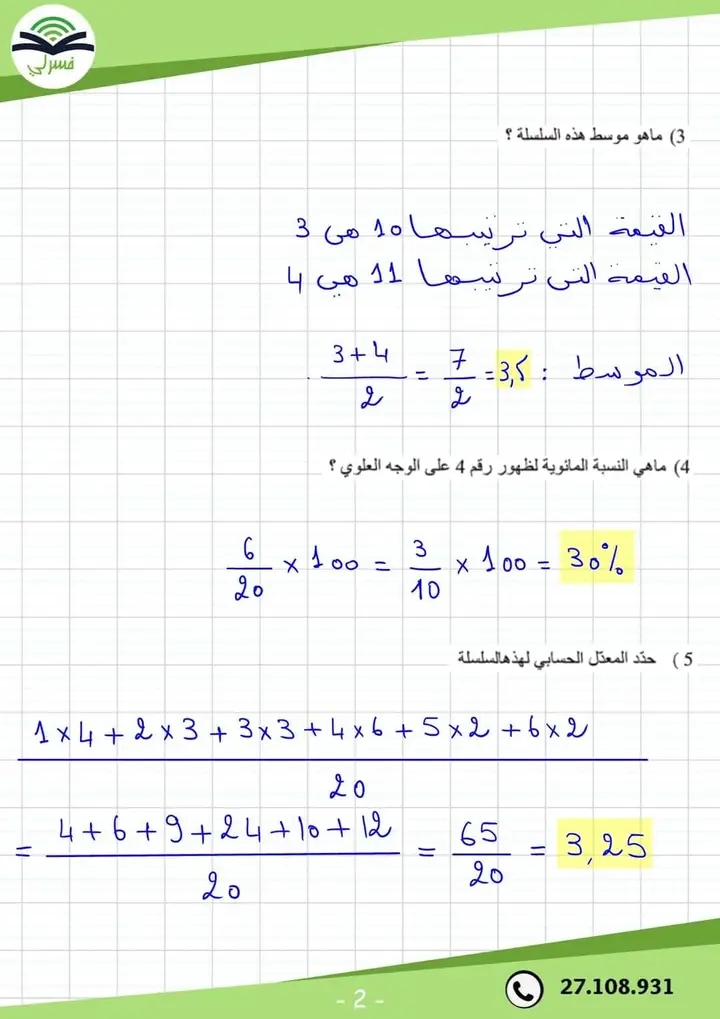 فسرلي
3) ماهو موسط هذه السلسلة ؟
القيمة التي ترتيبها 10 هي 3
القيمة التي ترتيبها 11 هي 4
الموسط : 3,5 = 7/2 = (3+4)/2
4) ماهي النسبة المائوية لظهور رقم 4 على الوجه العلوي ؟
6/20 × 100 = 3/10 × 100 = 30%
5 ) حدّد المعدّل الحسابي لهذهالسلسلة
1×4 + 2×3 + 3×3 + 4×6 + 5×2 + 6×2
20
= (4+6+9+24+10+12)/20 = 65/20 = 3,25
27.108.931
- 2 -